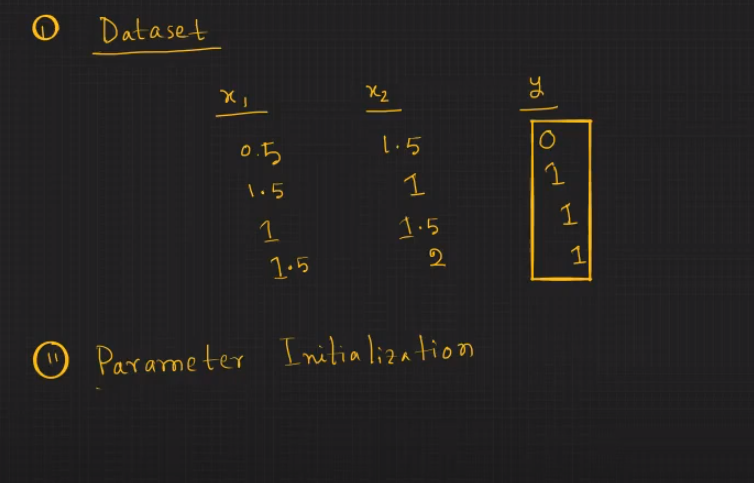 ① Dataset
x₁ x₂ y
0.5 1.5 0
1.5 1 1
1 1.5 1
1.5 2 1
⑪ Parameter Initialization